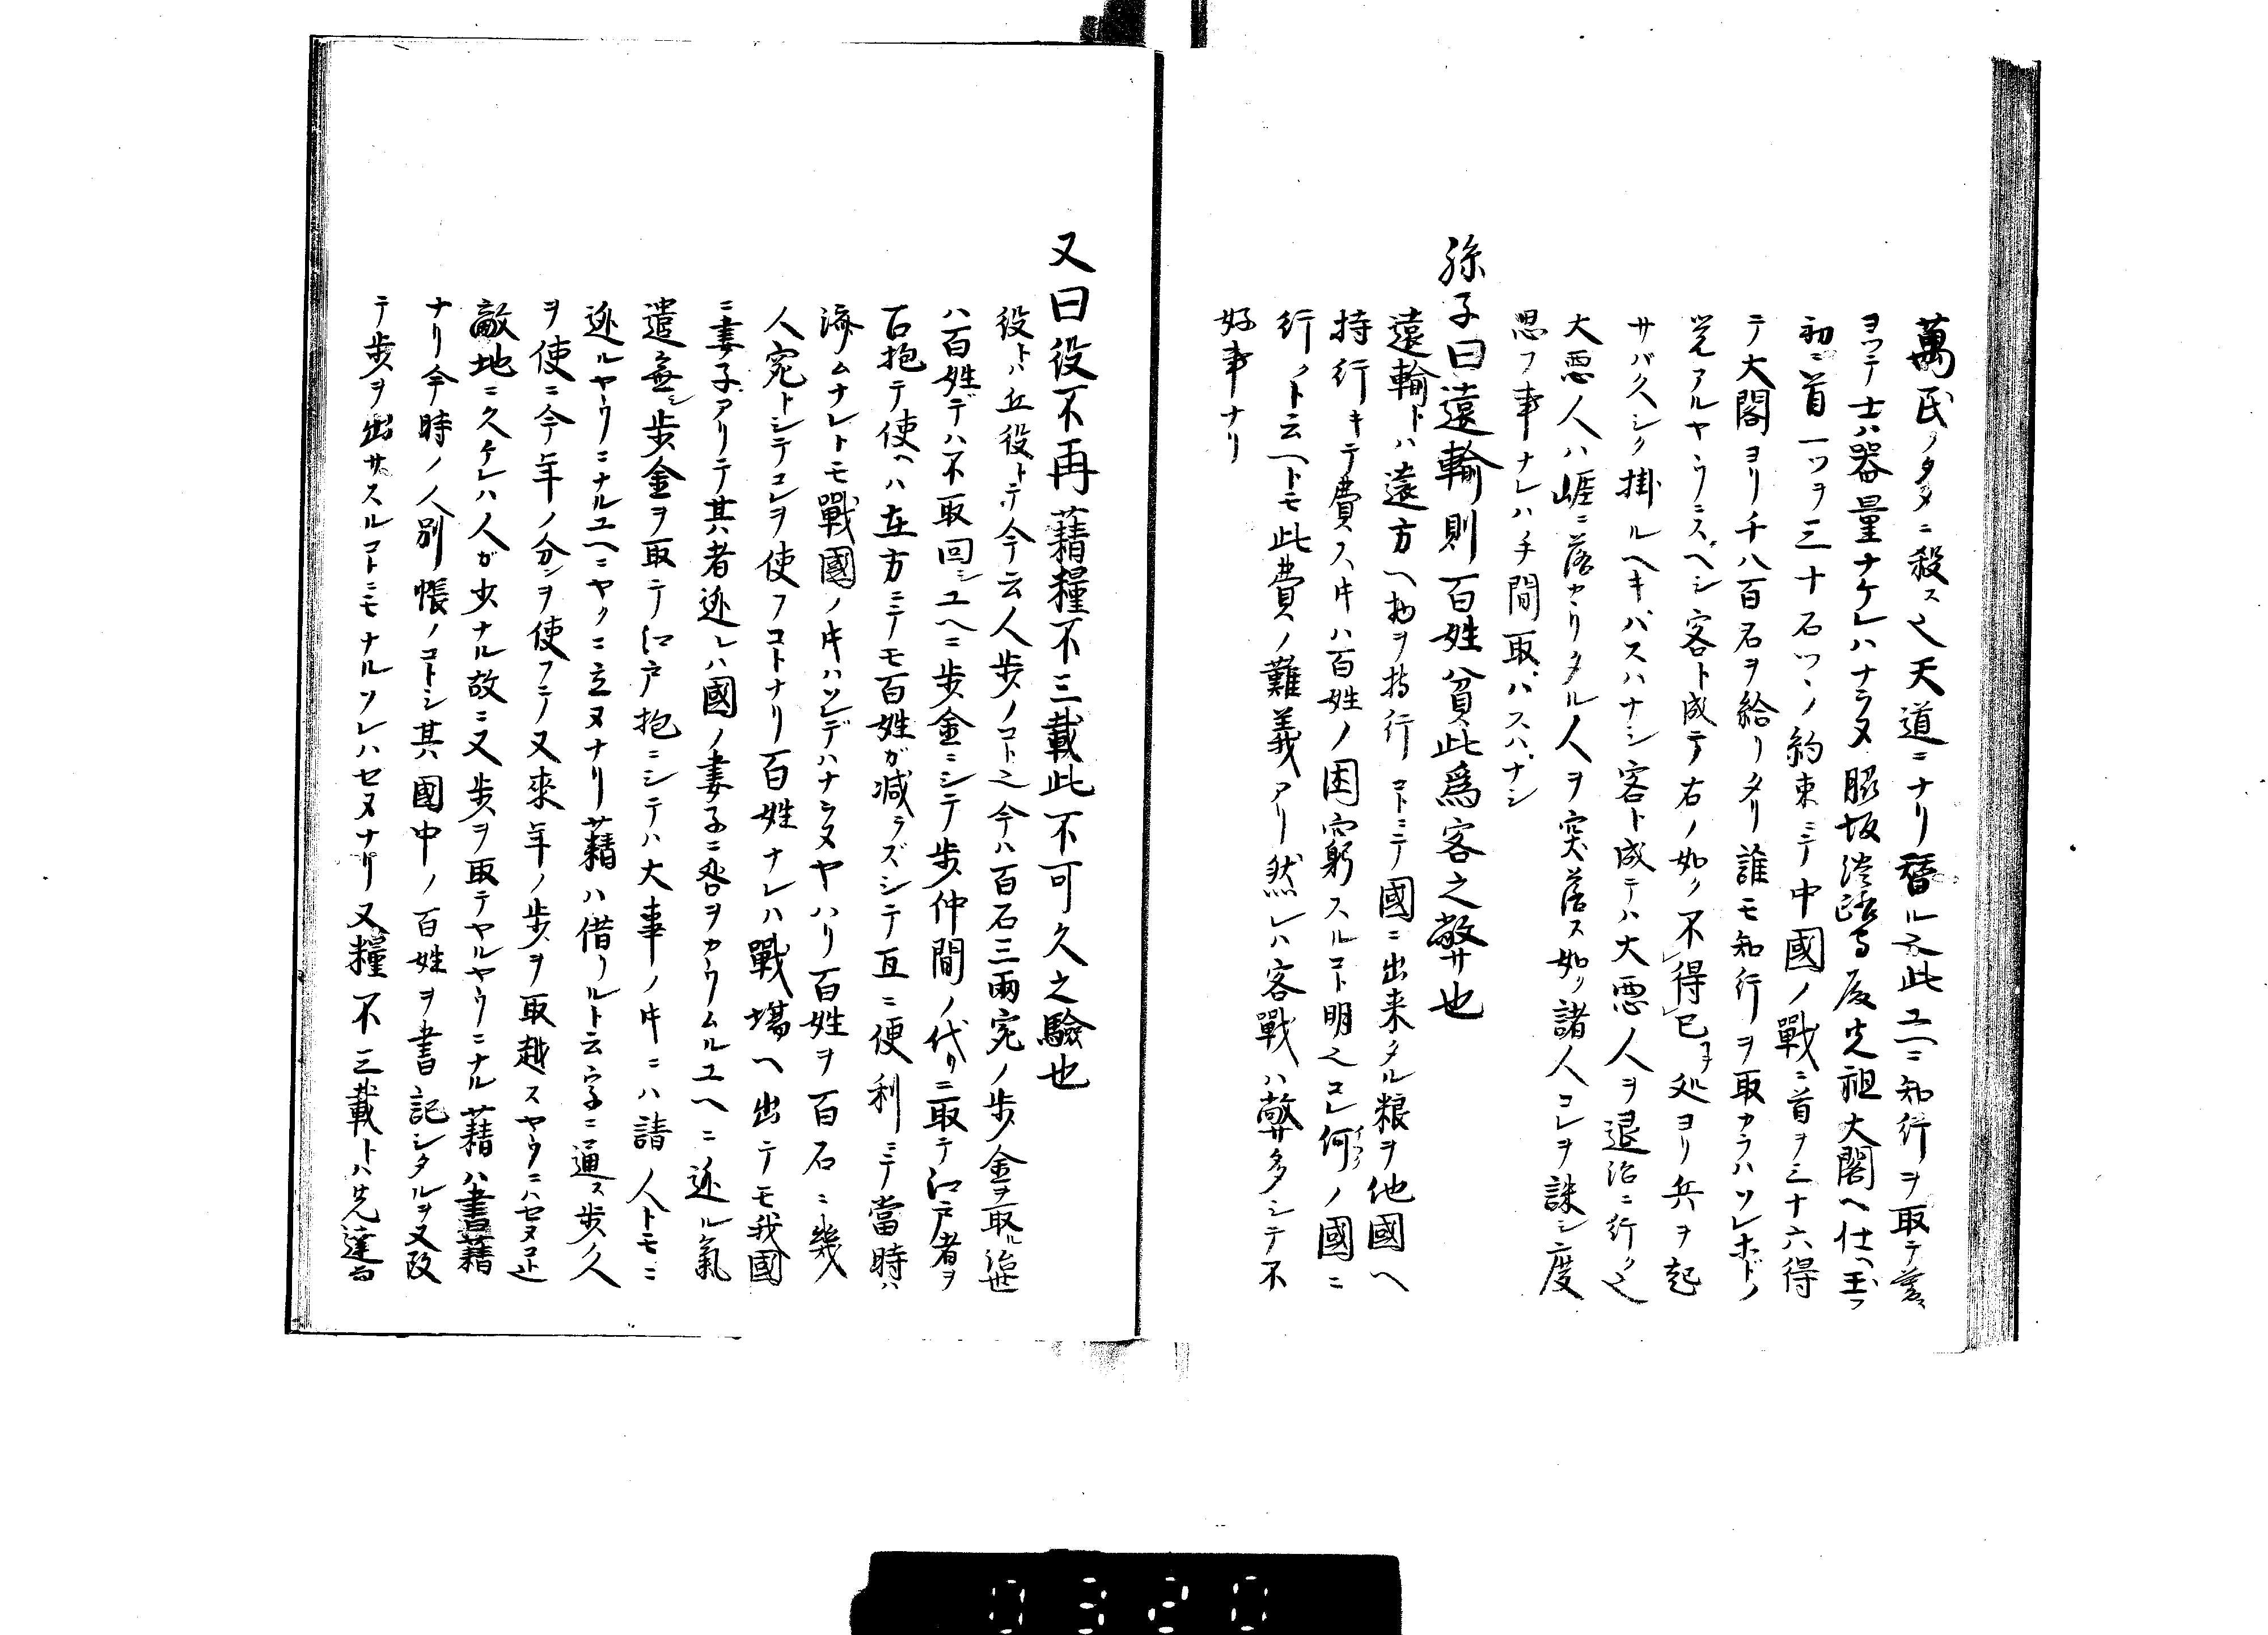 萬民ノタメニ殺ス之天道ニナリ替ル之此ユヘニ知行ヲ取テ
ヨツテ士ハ器量ナケレハナラヌ脇坂淡路守殿先祖大閤ヘ仕ヘ玉フ
初ニ首一ツヲ三十石ツヽノ約束ニテ中國ノ戰ニ首ヲ三十六得
テ大閤ヨリ千八百石ヲ給リタリ誰モ知行ヲ取カラハソレホドノ
覚アルヤウニスベシ客ト成テ右ノ如ク不得已ヲ処ヨリ兵ヲ起
サバ久シク掛ルヘキバスハナシ客ト成テハ大悪人ヲ退治ニ行ク之
大悪人ハ崕ニ落カヽリタル人ヲ突落ス如ク諸人コレヲ誅シ度
思フ事ナレハ手間取バスハナシ
孫子曰遠輸則百姓貧此爲客之弊也
遠輸トハ遠方ヘ物ヲ持行コトニテ國ニ出来タル粮ヲ他國ヘ
持行キテ費ス時ハ百姓ノ困窮スルコト明之コレ何ノ國ニ
行クト云ヘトモ此費ノ難義アリ然レハ客戰ハ弊多シテ不
好事ナリ
又曰役不再藉糧不三載此不可久之驗也
役トハ丘役トテ今云人歩ノコト之今ハ百石三兩宛ノ歩金ヲ取ル治世
ハ百姓デハ不取回シユヘニ歩金ニシテ歩仲間ノ代リニ取テ江戸者ヲ
百抱テ使ヘハ在方ニテモ百姓ガ減ラズシテ互ニ便利ニテ當時ハ
濟ムナレトモ戰國ノ時ハソレデハナラヌヤハリ百姓ヲ百石ニ幾
人宛トシテコレヲ使フコトナリ百姓ナレハ戰場ヘ出テモ我國
ニ妻子アリテ其者逊レハ國ノ妻子ニ咎ヲカウムルユヘニ逊ル氣
遣無シ歩金ヲ取テ江戸抱ニシテハ大事ノ時ニハ請人トモニ
逊ルヤウニナルユヘニヤクニ立ヌナリ藉ハ借ルト云字ニ通ス歩人
ヲ使ニ今年ノ分ヲ使フテ又來年ノ歩ヲ取越スヤウニハセヌ之
敵地ニ久ケレハ人ガ少ナル故ニ又歩ヲ取テヤルヤウニナル藉ハ書藉
ナリ今時ノ人別帳ノコトシ其國中ノ百姓ヲ書記シタルヲ又改
テ歩ヲ出サスルコトニモナルソレハセヌナリ又糧不三載トハ先達而